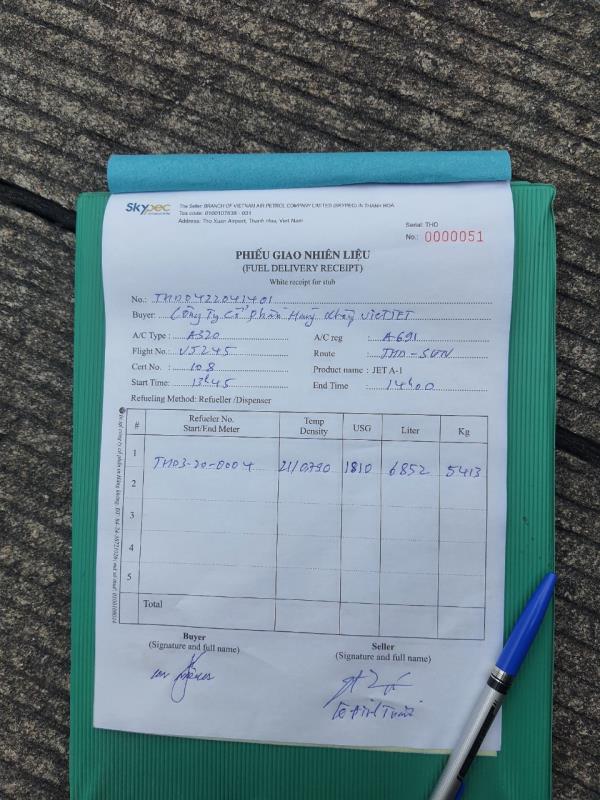 SKYPEC
The Seller: BRANCH OF VIETNAM AIR PETROL COMPANY LIMITED (SKYPEC) IN THANH HOA
Tax code: 0100107638 - 031
Address: Tho Xuan Airport, Thanh Hoa, Viet Nam
Serial: THD
No.: 0000051
PHIẾU GIAO NHIÊN LIỆU
(FUEL DELIVERY RECEIPT)
White receipt for stub
No.: THD0422041401
Buyer: Công Ty Cổ phần Hàng không VIETJET
A/C Type: A320 A/C reg A-691
Flight No.: VJ5245 Route THD-SGN
Cert No. 108 Product name: JET A-1
Start Time: 13h45 End Time 14h00
Refueling Method: Refueller /Dispenser
# Refueler No. Start/End Meter Temp Density USG Liter Kg
1 TH03-20-0004 21/0790 1810 6852 5413
2
3
4
5
Total
Buyer Seller
(Signature and full name) (Signature and full name)